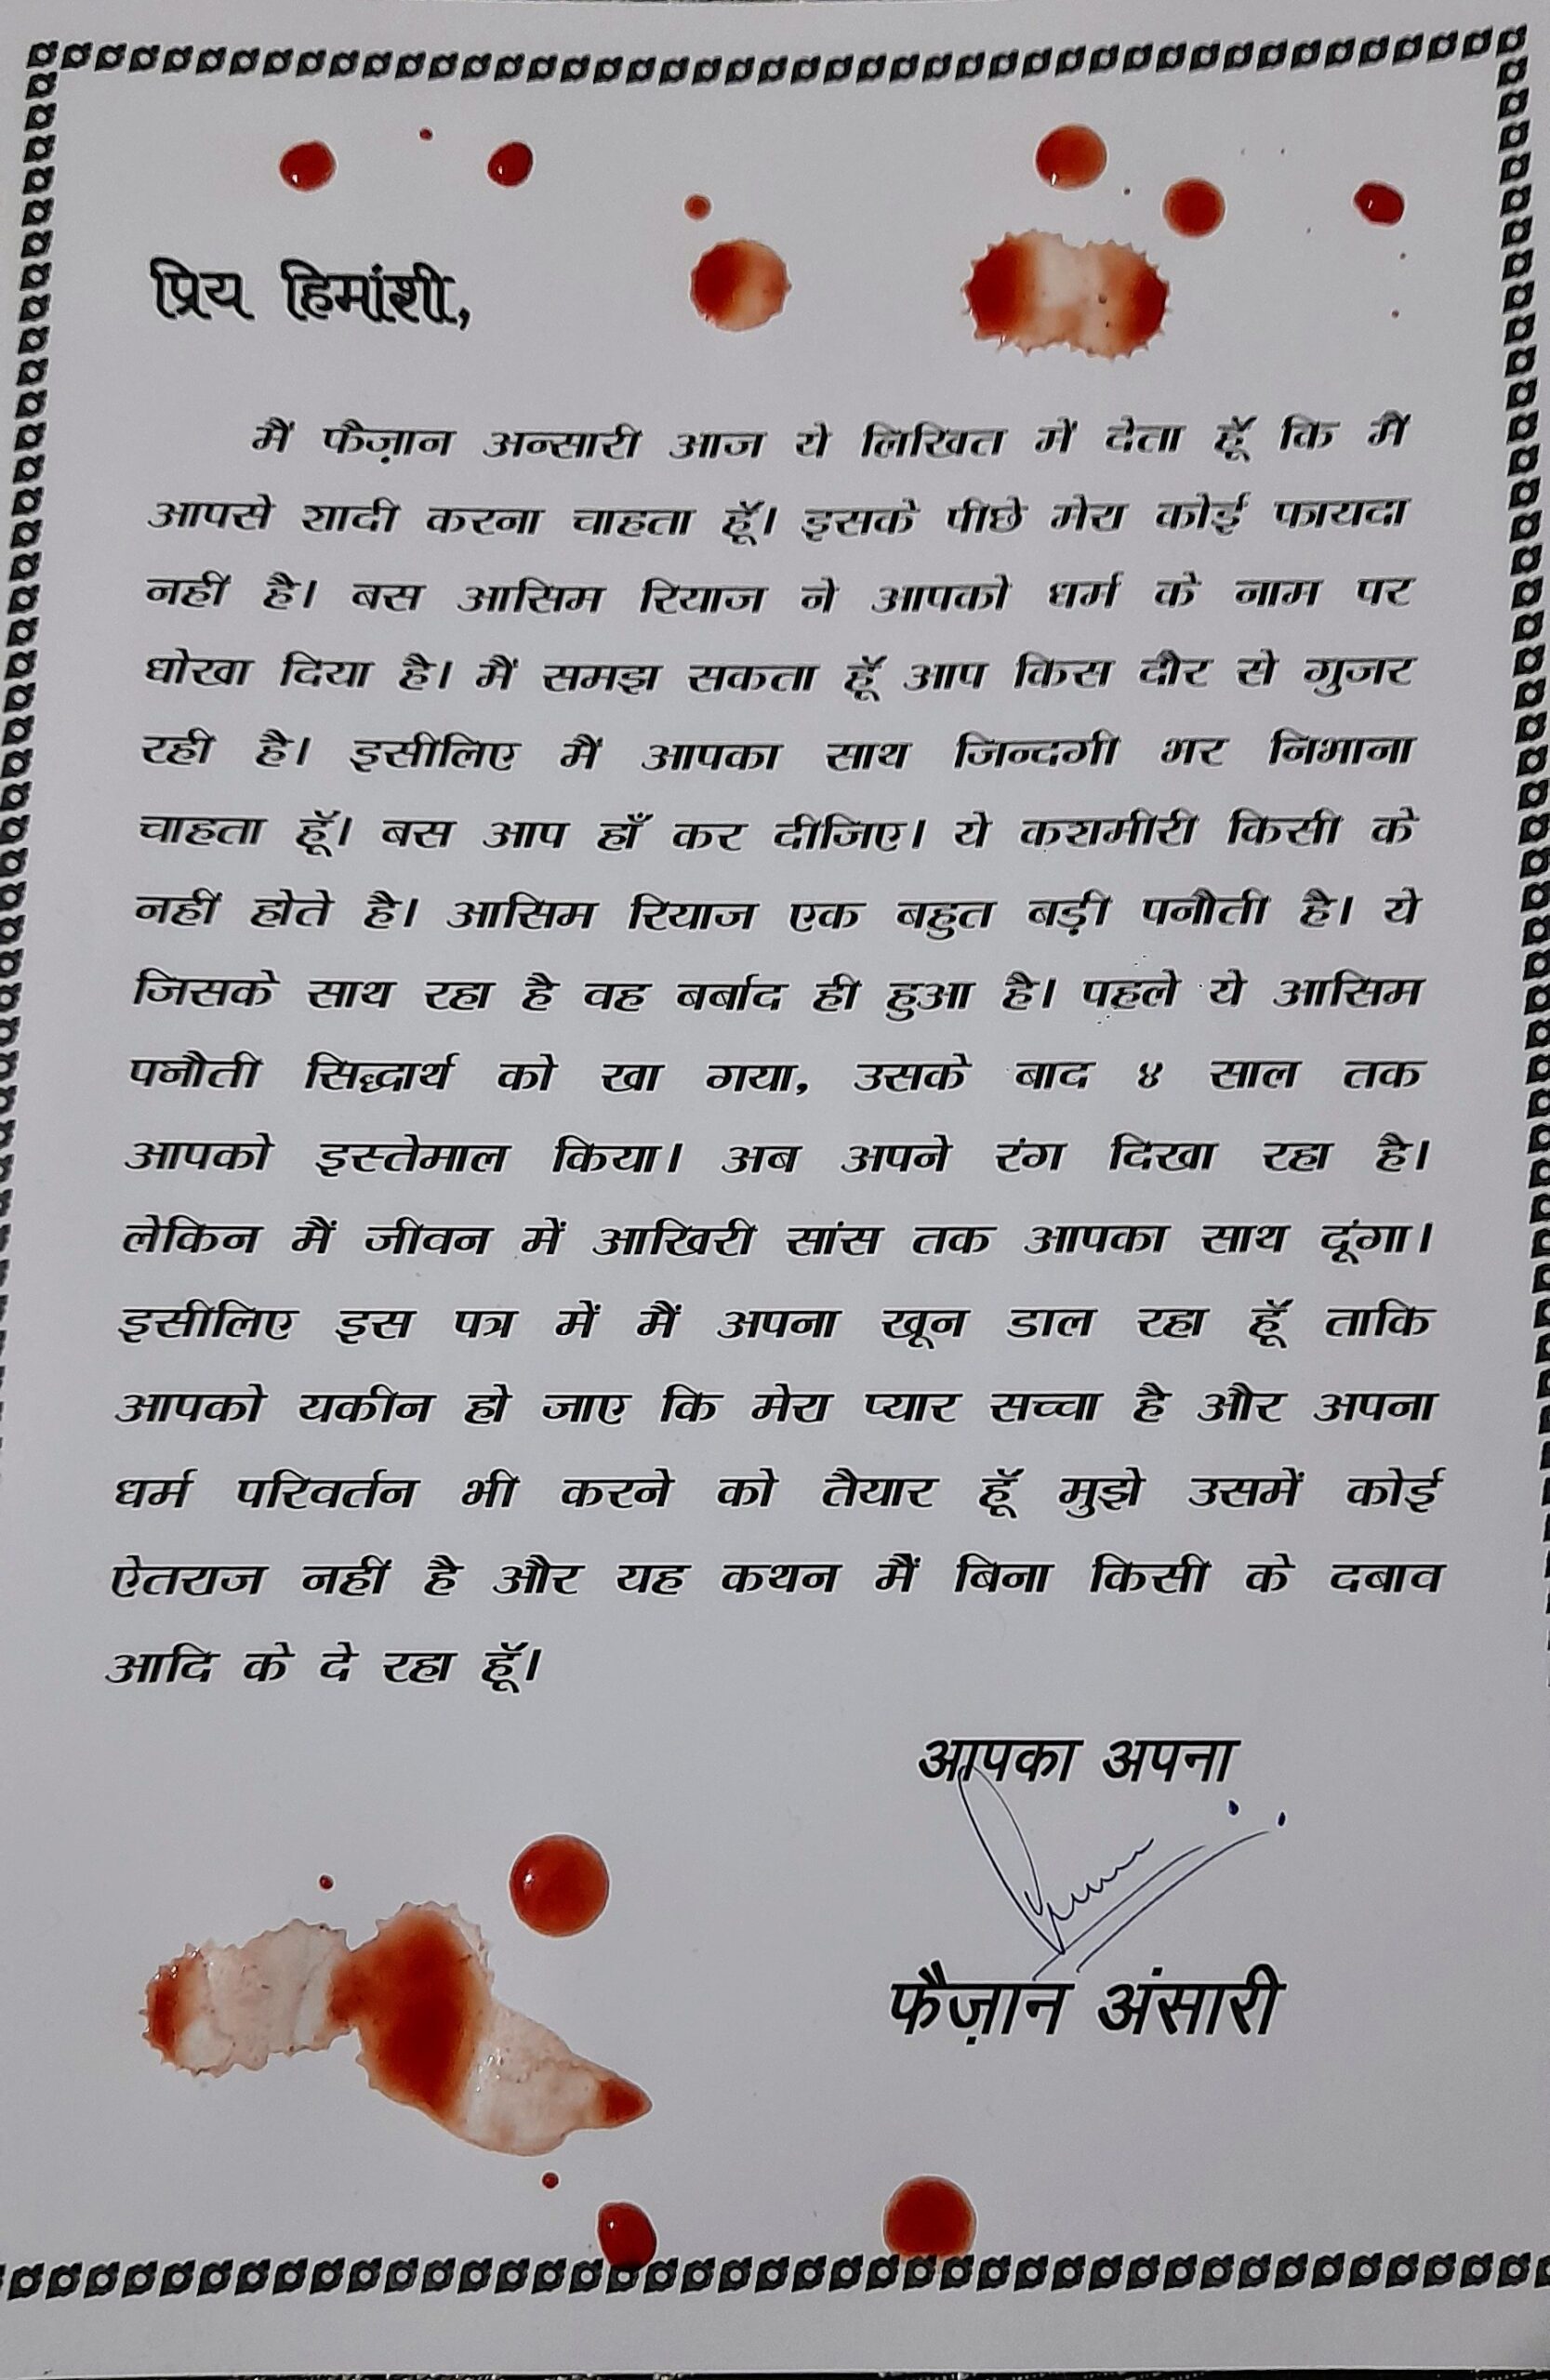 प्रिय हिमांशी,
मैं फैज़ान अन्सारी आज ये लिखित में देता हूँ कि मैं
आपसे शादी करना चाहता हूँ। इसके पीछे मेरा कोई फायदा
नहीं है। बस आसिम रियाज ने आपको धर्म के नाम पर
धोखा दिया है। मैं समझ सकता हूँ आप किस दौर से गुजर
रही है। इसीलिए मैं आपका साथ जिन्दगी भर निभाना
चाहता हूँ। बस आप हाँ कर दीजिए। ये कशमीरी किसी के
नहीं होते है। आसिम रियाज एक बहुत बड़ी पनौती है। ये
जिसके साथ रहा है वह बर्बाद ही हुआ है। पहले ये आसिम
पनौती सिद्धार्थ को खा गया, उसके बाद ४ साल तक
आपको इस्तेमाल किया। अब अपने रंग दिखा रहा है।
लेकिन मैं जीवन में आखिरी सांस तक आपका साथ दूंगा।
इसीलिए इस पत्र में मैं अपना खून डाल रहा हूँ ताकि
आपको यकीन हो जाए कि मेरा प्यार सच्चा है और अपना
धर्म परिवर्तन भी करने को तैयार हूँ मुझे उसमें कोई
ऐतराज नहीं है और यह कथन मैं बिना किसी के दबाव
आदि के दे रहा हूँ।
आपका अपना
फैज़ान अंसारी